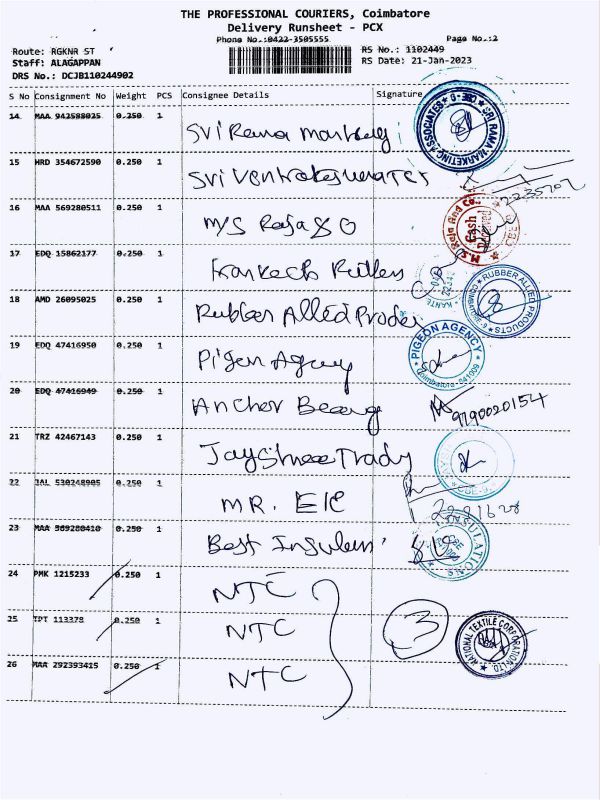 THE PROFESSIONAL COURIERS, Coimbatore
Delivery Runsheet - PCX
Phone No.:0422-3505555 Page No.:2
Route: RGKNR ST RS No.: 1102449
Staff: ALAGAPPAN RS Date: 21-Jan-2023
DRS No.: DCJB110244902
S No Consignment No Weight PCS Consignee Details Signature
14 MAA 942588025 0.250 1 Sri Rama Marketing
SRI RAMA MARKETING ASSOCIATES ★ CBE-9 ★
15 HRD 354672590 0.250 1 Sri Venkateshwara
2235702
16 MAA 569280511 0.250 1 M/S Raja & Co
M.S. Raja And Co. Cash
17 EDQ 15862177 0.250 1
18 AMD 26095025 0.250 1 Rubber Allied Produ
RUBBER ALLIED PRODUCTS
19 EDQ 47416950 0.250 1 Pigeon Agency
PIGEON AGENCY Coimbatore-641009
20 EDQ 47416949 0.250 1 Anchor Bearg
9190020154
21 TRZ 42467143 0.250 1 Jayshree Trady
22 JAL 530248905 0.250 1 MR. Ele
23 MAA 569280410 0.250 1 Best Insulan
INSULATIONS
24 PMK 1215233 0.250 1 NTC
25 TPT 113378 0.250 1 NTC 3
NATIONAL TEXTILE CORPORATION LTD.
26 MAA 292393415 0.250 1 NTC